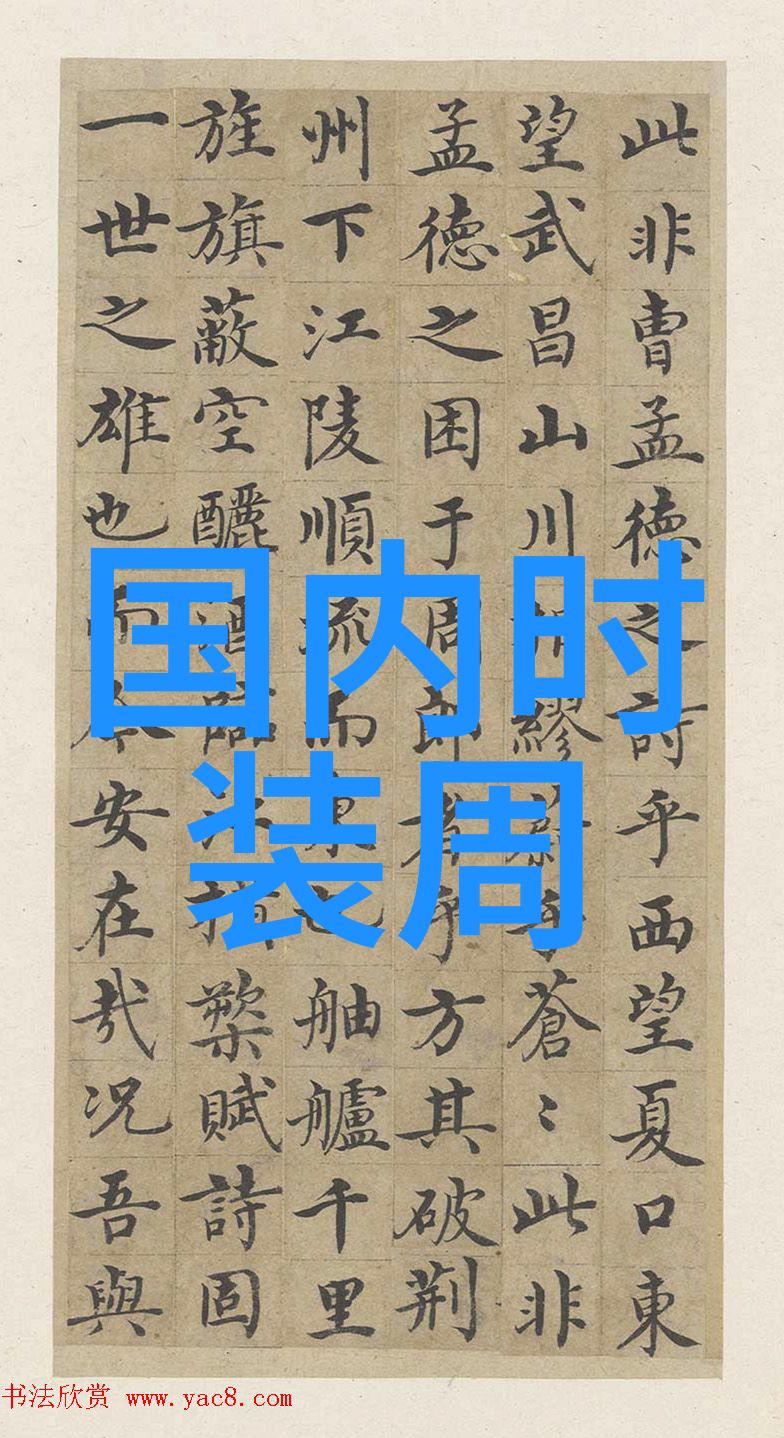 此非曹孟德之詩乎西望夏口東
望武昌山川繆乎蒼〻此非
孟德之困于周郎者乎方其破荆
州下江陵順流而東也舳艫千里
旌旗蔽空釃酒臨江橫槊賦詩固
一世之雄也而今安在哉况吾與
国内时
装周
书法欣赏 www.yac8.com